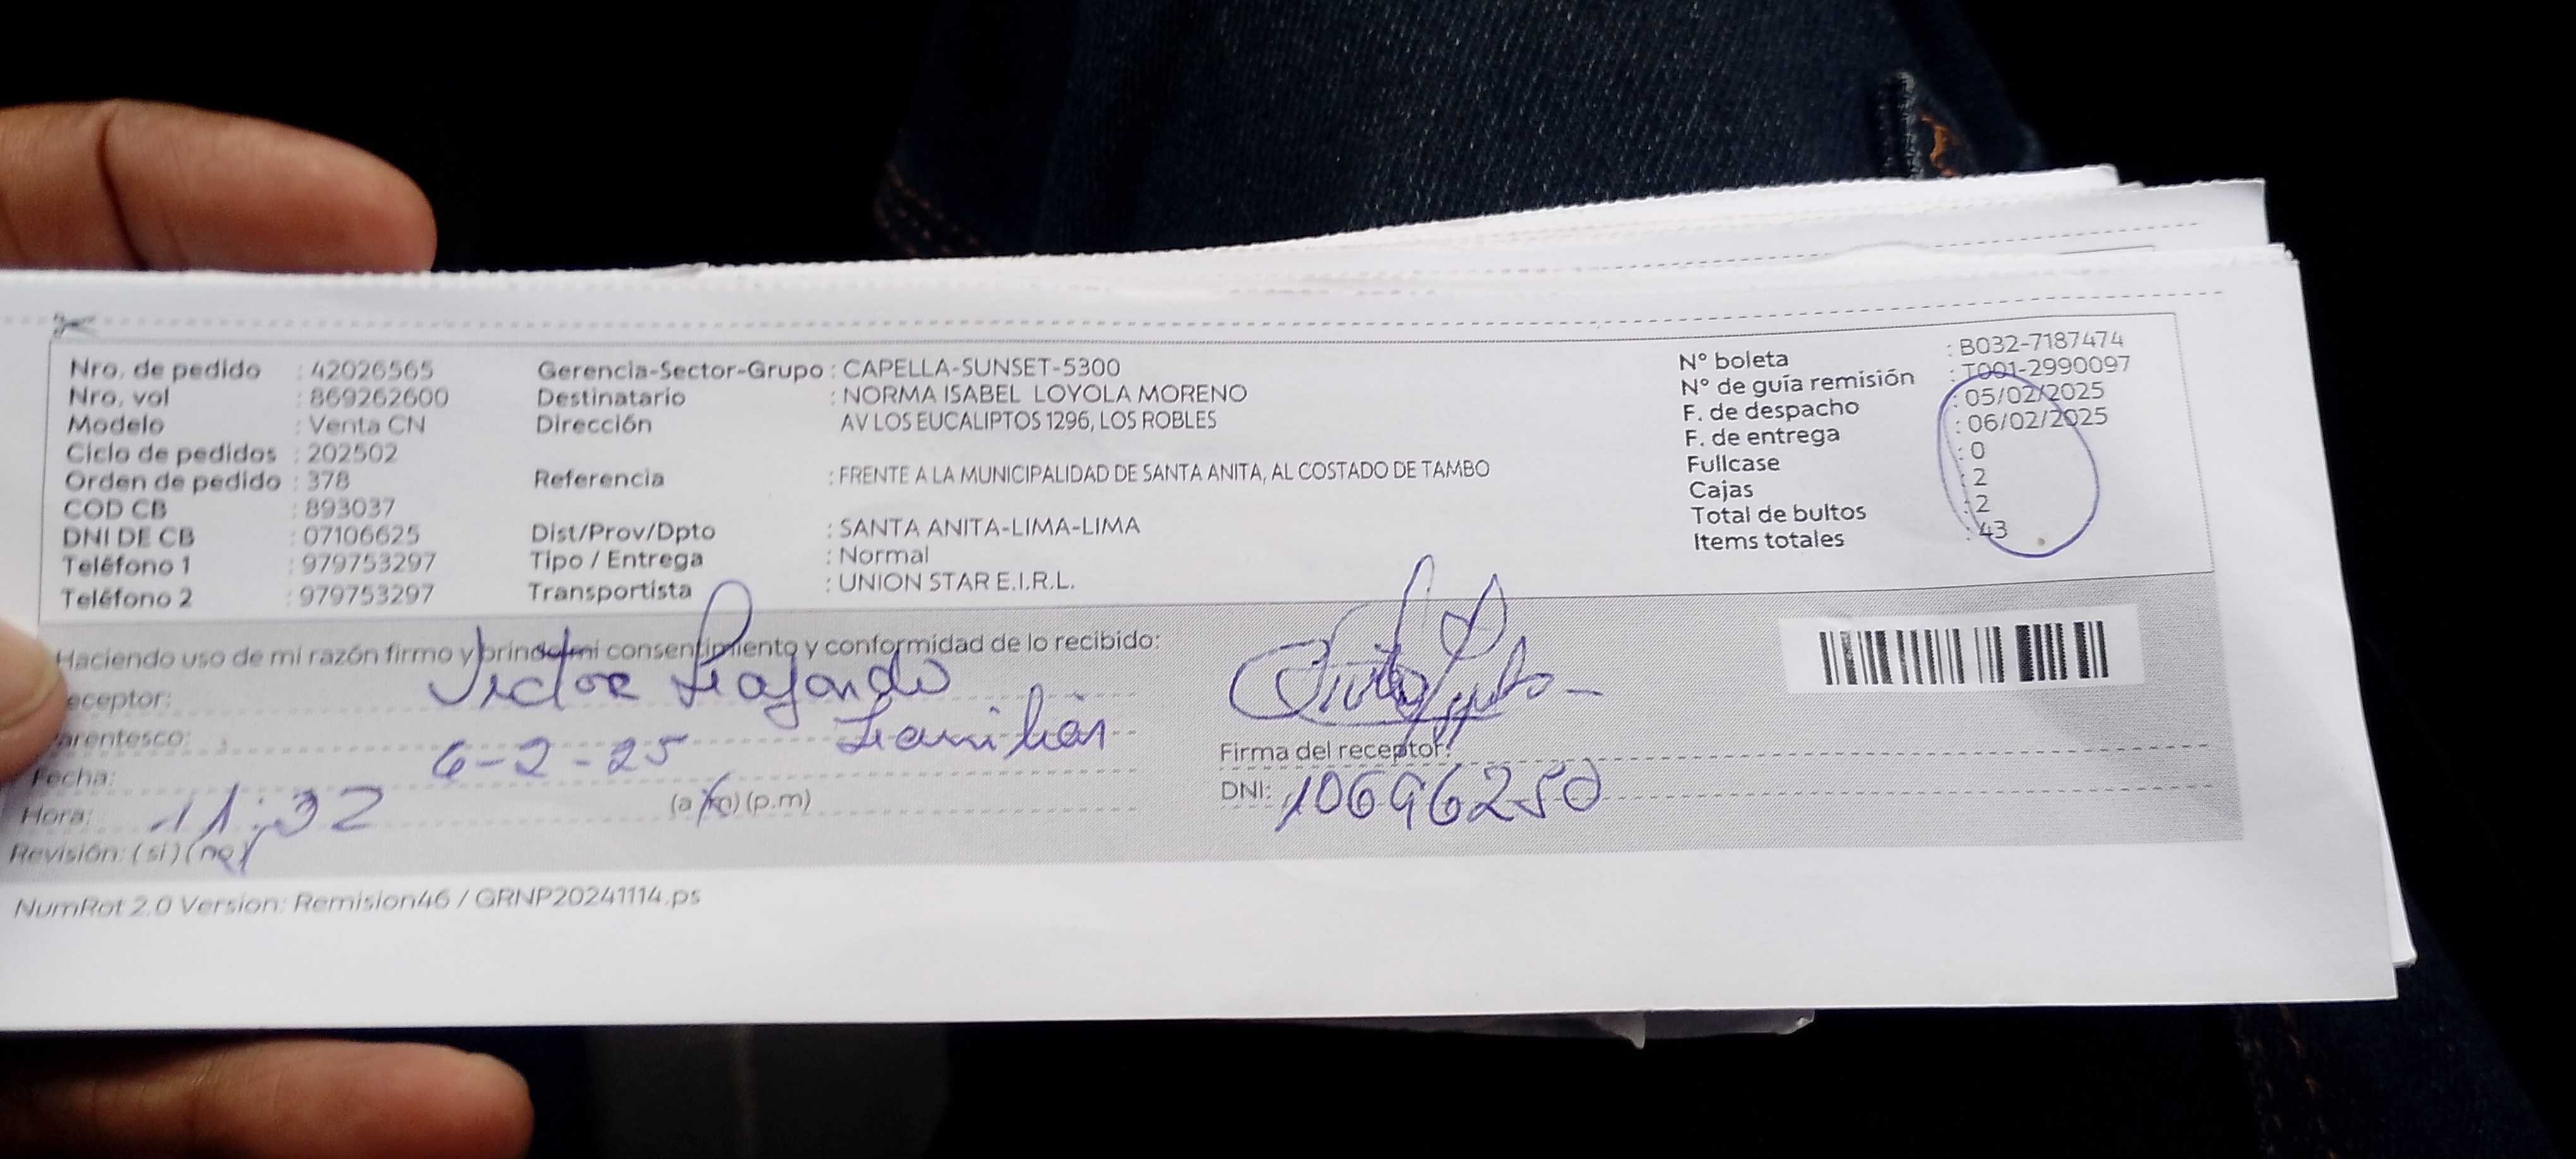 Nro. de pedido : 42026565
Nro. vol : 869262600
Modelo : Venta CN
Ciclo de pedidos : 202502
Orden de pedido : 378
COD CB : 893037
DNI DE CB : 07106625
Teléfono 1 : 979753297
Teléfono 2 : 979753297
Gerencia-Sector-Grupo : CAPELLA-SUNSET-5300
Destinatario : NORMA ISABEL LOYOLA MORENO
Dirección AV LOS EUCALIPTOS 1296, LOS ROBLES
Referencia : FRENTE A LA MUNICIPALIDAD DE SANTA ANITA, AL COSTADO DE TAMBO
Dist/Prov/Dpto : SANTA ANITA-LIMA-LIMA
Tipo / Entrega : Normal
Transportista : UNION STAR E.I.R.L.
N° boleta : B032-7187474
N° de guía remisión : T001-2990097
F. de despacho : 05/02/2025
F. de entrega : 06/02/2025
Fullcase : 0
Cajas : 2
Total de bultos : 2
Items totales : 43
Haciendo uso de mi razón firmo y brindo mi consentimiento y conformidad de lo recibido:
eceptor: Victor
arentesco: Familiar
Fecha: 6-2-25
Hora: 11:32 (a.m) (p.m)
Revisión: (si) (no)
Firma del receptor:
DNI: 10696250
NumRot 2.0 Version: Remision46 / GRNP20241114.ps